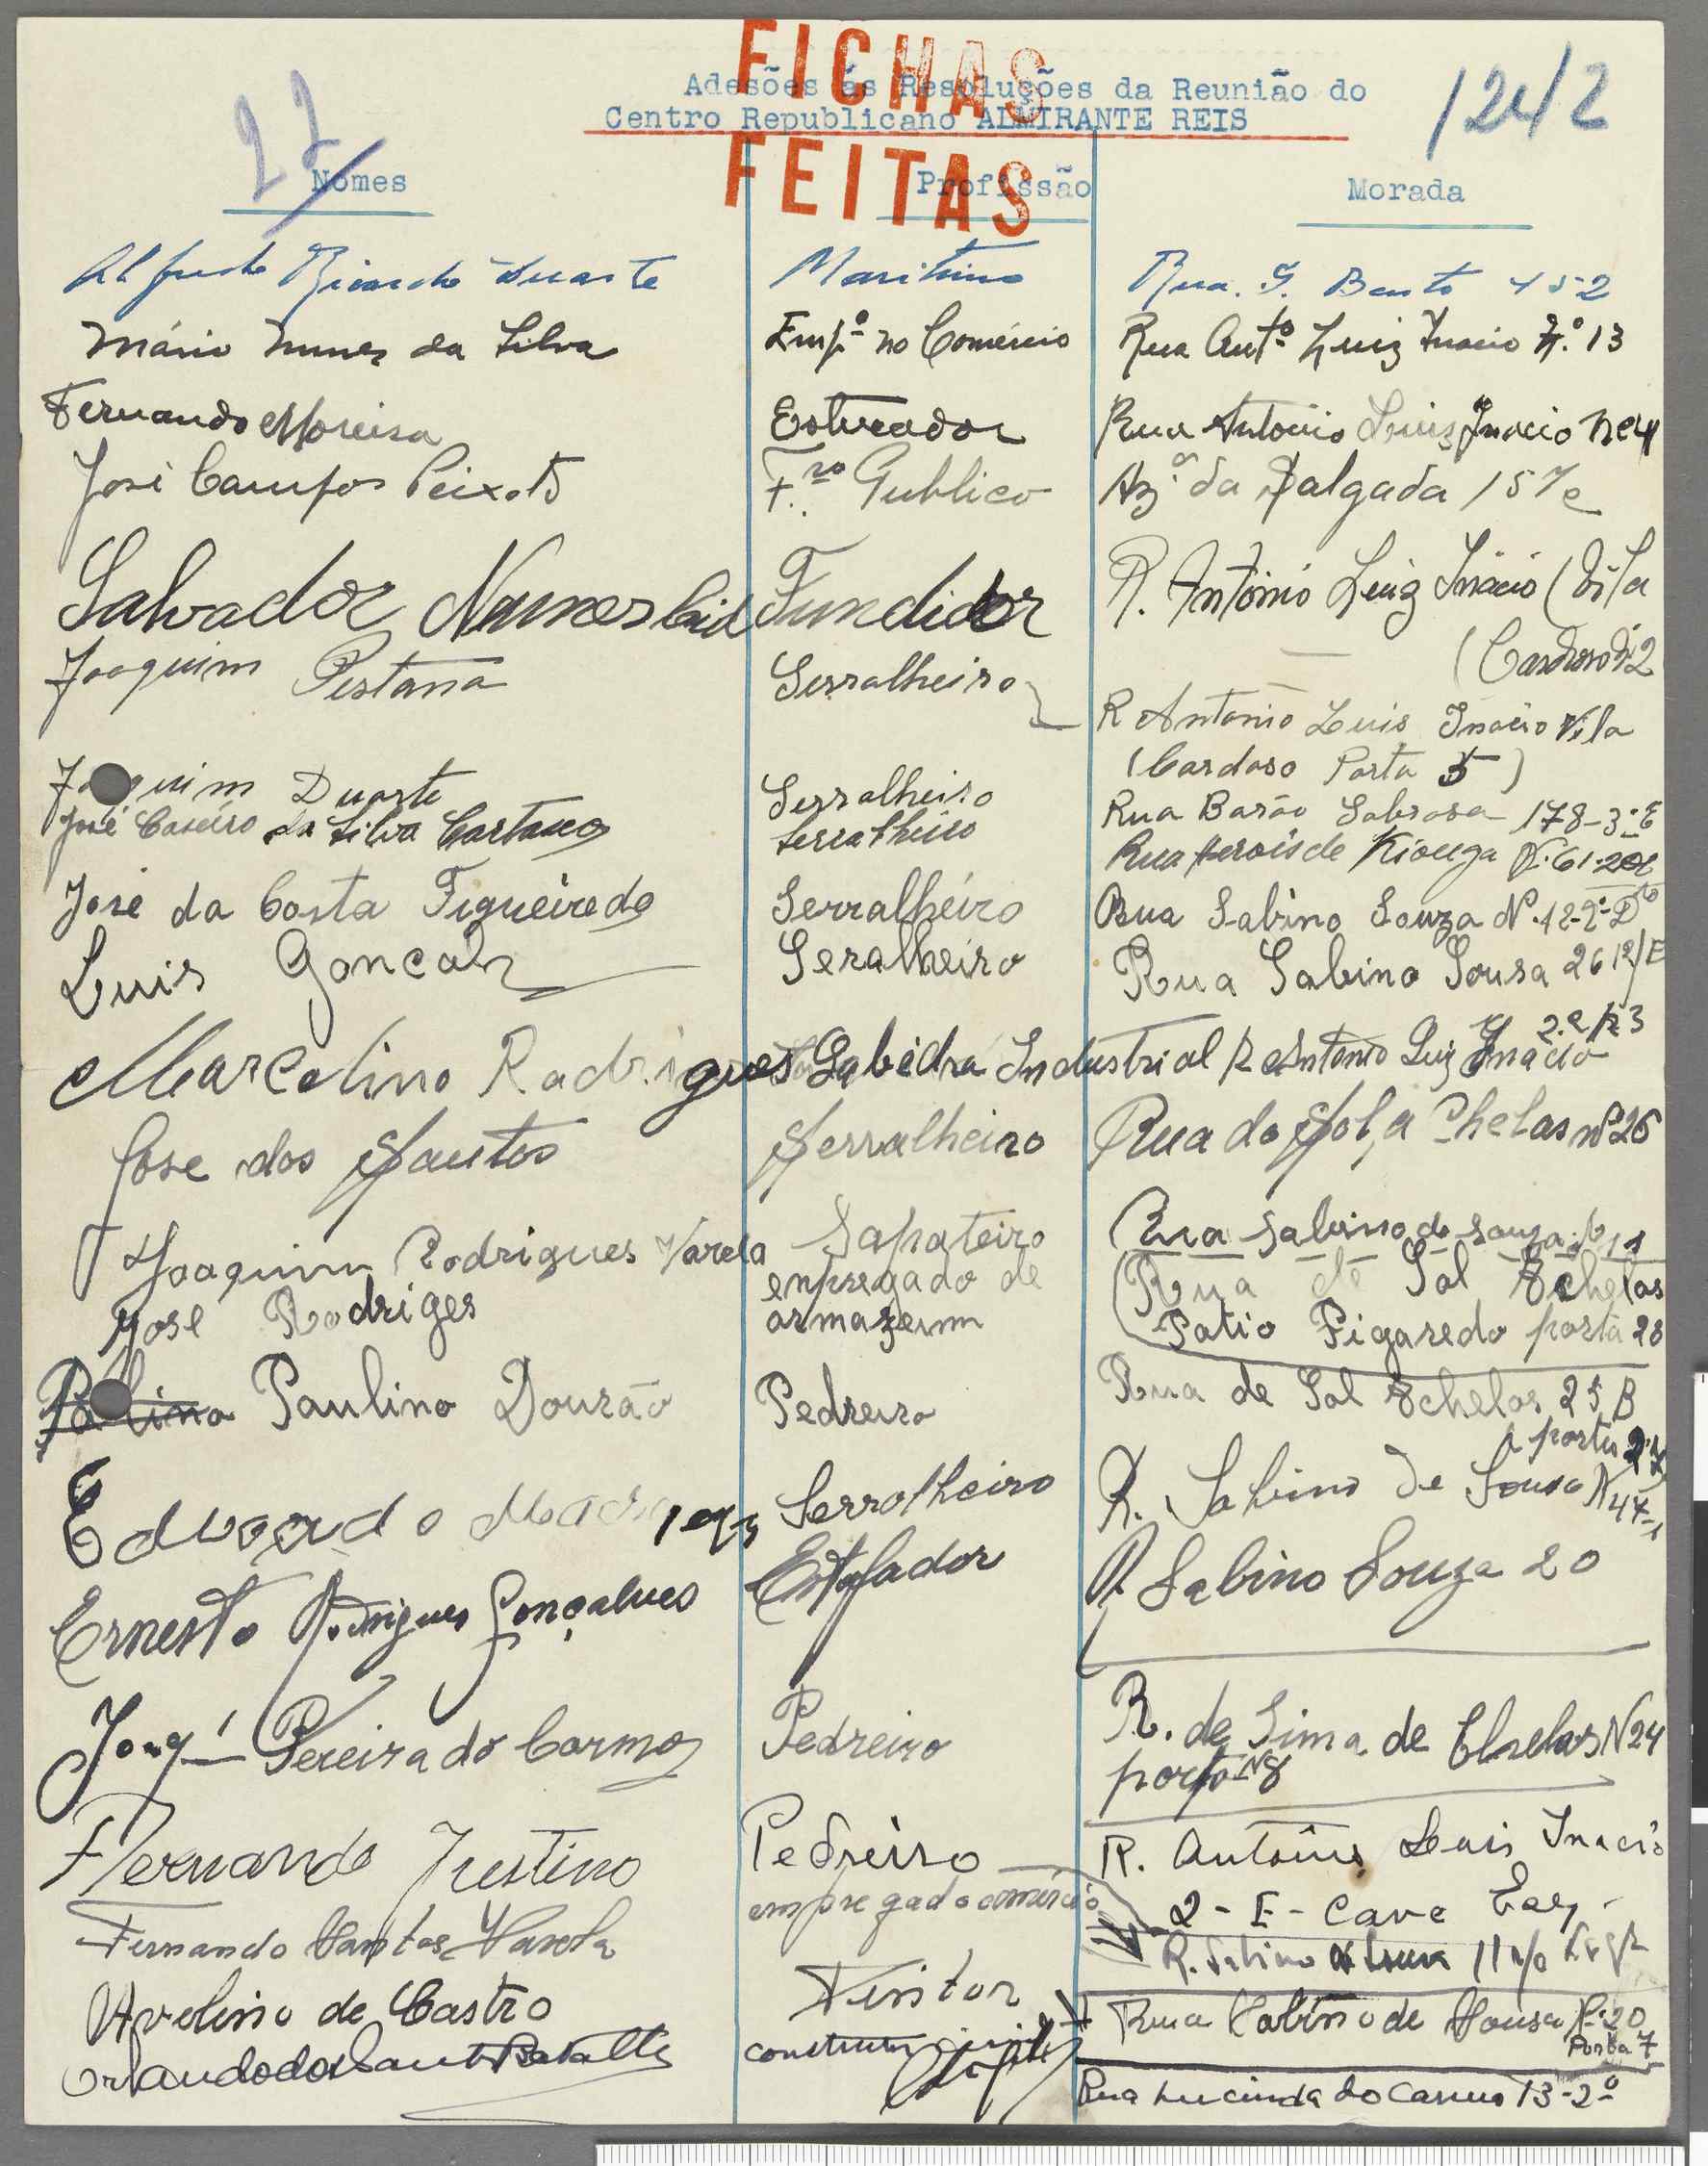 FICHAS
Adesões ás Resoluções da Reunião do
Centro Republicano ALMIRANTE REIS
1242
27
FEITAS
Nomes Profissão Morada
Alfredo Ricardo Duarte Maritimo Rua. J. Bento 452
Mário Nunes da Silva Emp.º no Comércio Rua Antº Luiz Inacio N.º 13
Fernando Moreira Estucador Rua Antonio Luis Inacio Nº
José Campos Peixoto F.ro Publico Az.ª da Salgada 15
Salvador Nunes Cid Fundidor R. António Luiz Inácio (Vila
(Cardoso 2
Joaquim Pestana Serralheiro R Antonio Luis Inacio Vila
(Cardoso Porta 5)
Joaquim Duarte Serralheiro Rua Barão Sabrosa 178-3º E
José Caseiro da Silva Cartaxo Serralheiro Rua Herois de Kionga Nº 61-2º
José da Costa Figueiredo Serralheiro Rua Sabino Souza Nº 12-2º Dto
Luis Goncalz Seralheiro Rua Sabino Sousa 26
Marcelino Rodrigues Sabidra Industrial R Antonio Luiz Inacio
Jose dos Santos Serralheiro Rua do Sol, a Chelas nº 26
Joaquim Rodrigues Varela Sapateiro Rua Sabino de Souza 11
Jose Rodriges enpregado de armazeim Rua de Sol Echelas
Patio Figaredo porta 28
Paulino Dourão Pedreiro Rua de Sol Echelas 25 B
porta
Eduardo Serrolheiro R. Sabino de Sousa N 47-1
Ernesto Rodrigues Gonçalves Estofador R Sabino Souza 20
Joaq. Pereira do Carmo Pedreiro R. de Sima de Chelas N 24
porta Nº 8
Fernando Justino Pedreiro R. António Luis Inacio
2 - E - Cave Esq.
Fernando Santos Varela empregado comércio R. Sabino de Sousa 11
Avelino de Castro Pintor Rua Sabino de Sousa Nº 20
Porta 7
Orlando dos Santos Batalha construtor civil Rua Lucinda do Carmo 13-2º